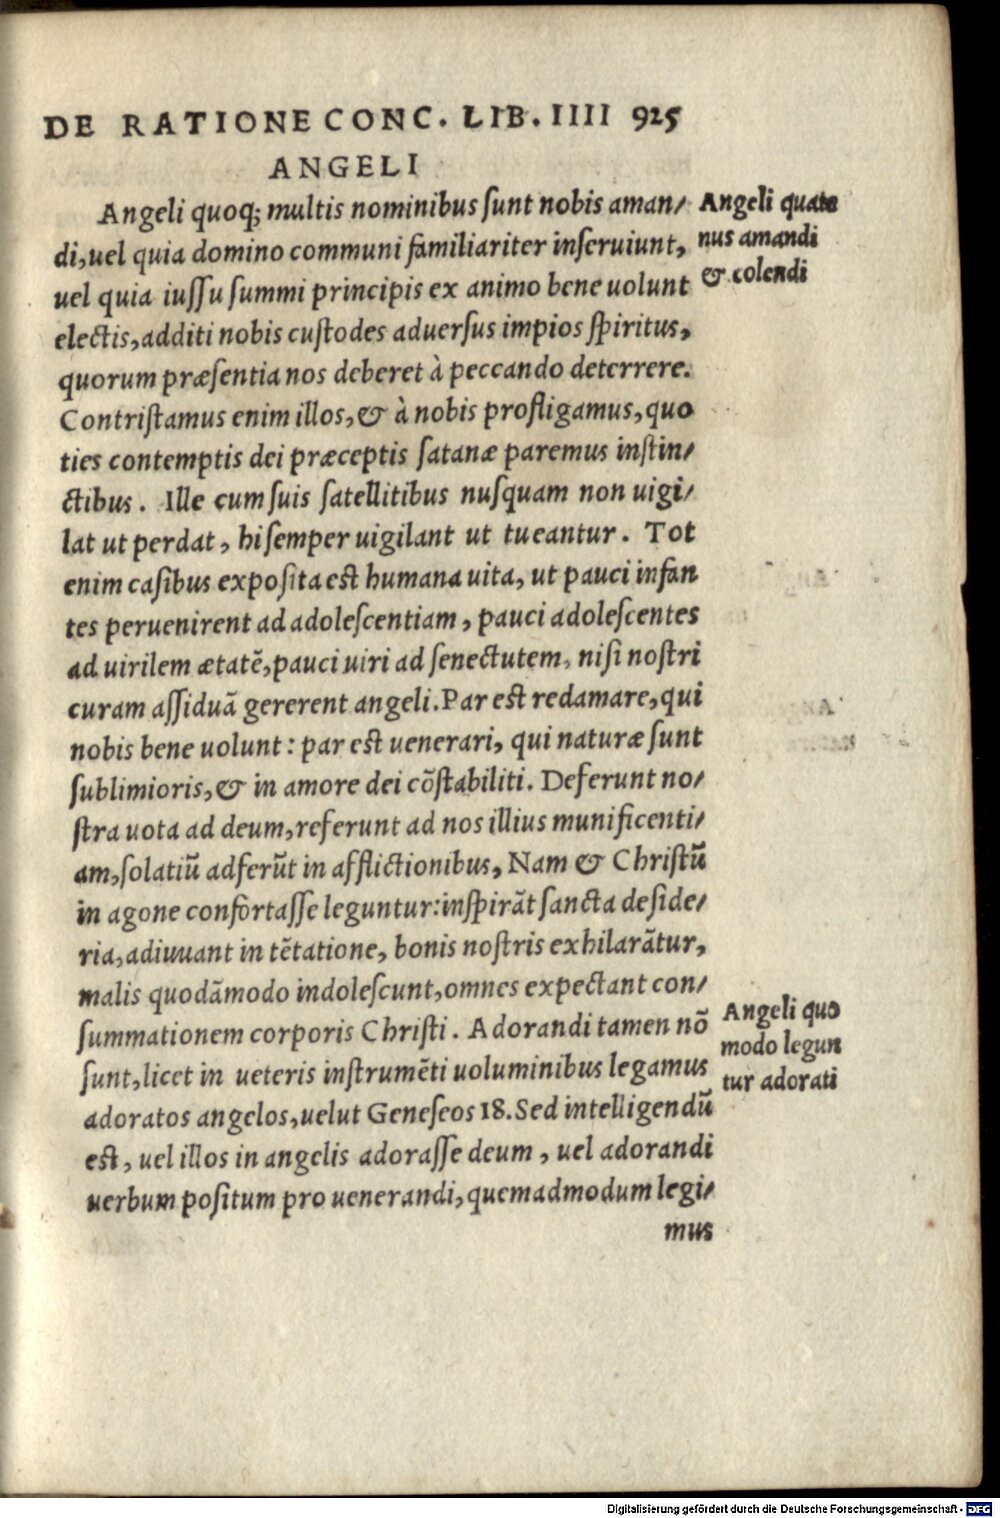 DE RATIONE CONC. LIB. IIII 925
ANGELI
Angeli quoq; multis nominibus ſunt nobis aman/
di, uel quia domino communi familiariter inſeruiunt,
uel quia iuſſu ſummi principis ex animo bene uolunt
electis, additi nobis cuſtodes aduerſus impios ſpiritus,
quorum præſentia nos deberet à peccando deterrere.
Contriſtamus enim illos, & à nobis profligamus, quo
ties contemptis dei præceptis ſatanæ paremus inſtin/
ctibus. Ille cum ſuis ſatellitibus nuſquam non uigi/
lat ut perdat, hi ſemper uigilant ut tueantur. Tot
enim caſibus expoſita est humana uita, ut pauci infan
tes peruenirent ad adoleſcentiam, pauci adoleſcentes
ad uirilem ætatē, pauci uiri ad ſenectutem, niſi noſtri
curam aſſiduā gererent angeli. Par est redamare, qui
nobis bene uolunt: par est uenerari, qui naturæ ſunt
ſublimioris, & in amore dei cōſtabiliti. Deferunt no/
ſtra uota ad deum, referunt ad nos illius munificenti/
am, ſolatiū adferūt in afflictionibus, Nam & Chriſtū
in agone confortaſſe leguntur: inſpirāt ſancta deſide/
ria, adiuuant in tētatione, bonis noſtris exhilarātur,
malis quodāmodo indoleſcunt, omnes expectant con/
ſummationem corporis Chriſti. Adorandi tamen nō
ſunt, licet in ueteris inſtrumēti uoluminibus legamus
adoratos angelos, uelut Geneſeos 18. Sed intelligendū
est, uel illos in angelis adoraſſe deum, uel adorandi
uerbum poſitum pro uenerandi, quemadmodum legi/
mus
Angeli quate
nus amandi
& colendi
Angeli quo
modo legun
tur adorati
Digitalisierung gefördert durch die Deutsche Forschungsgemeinschaft - DFG